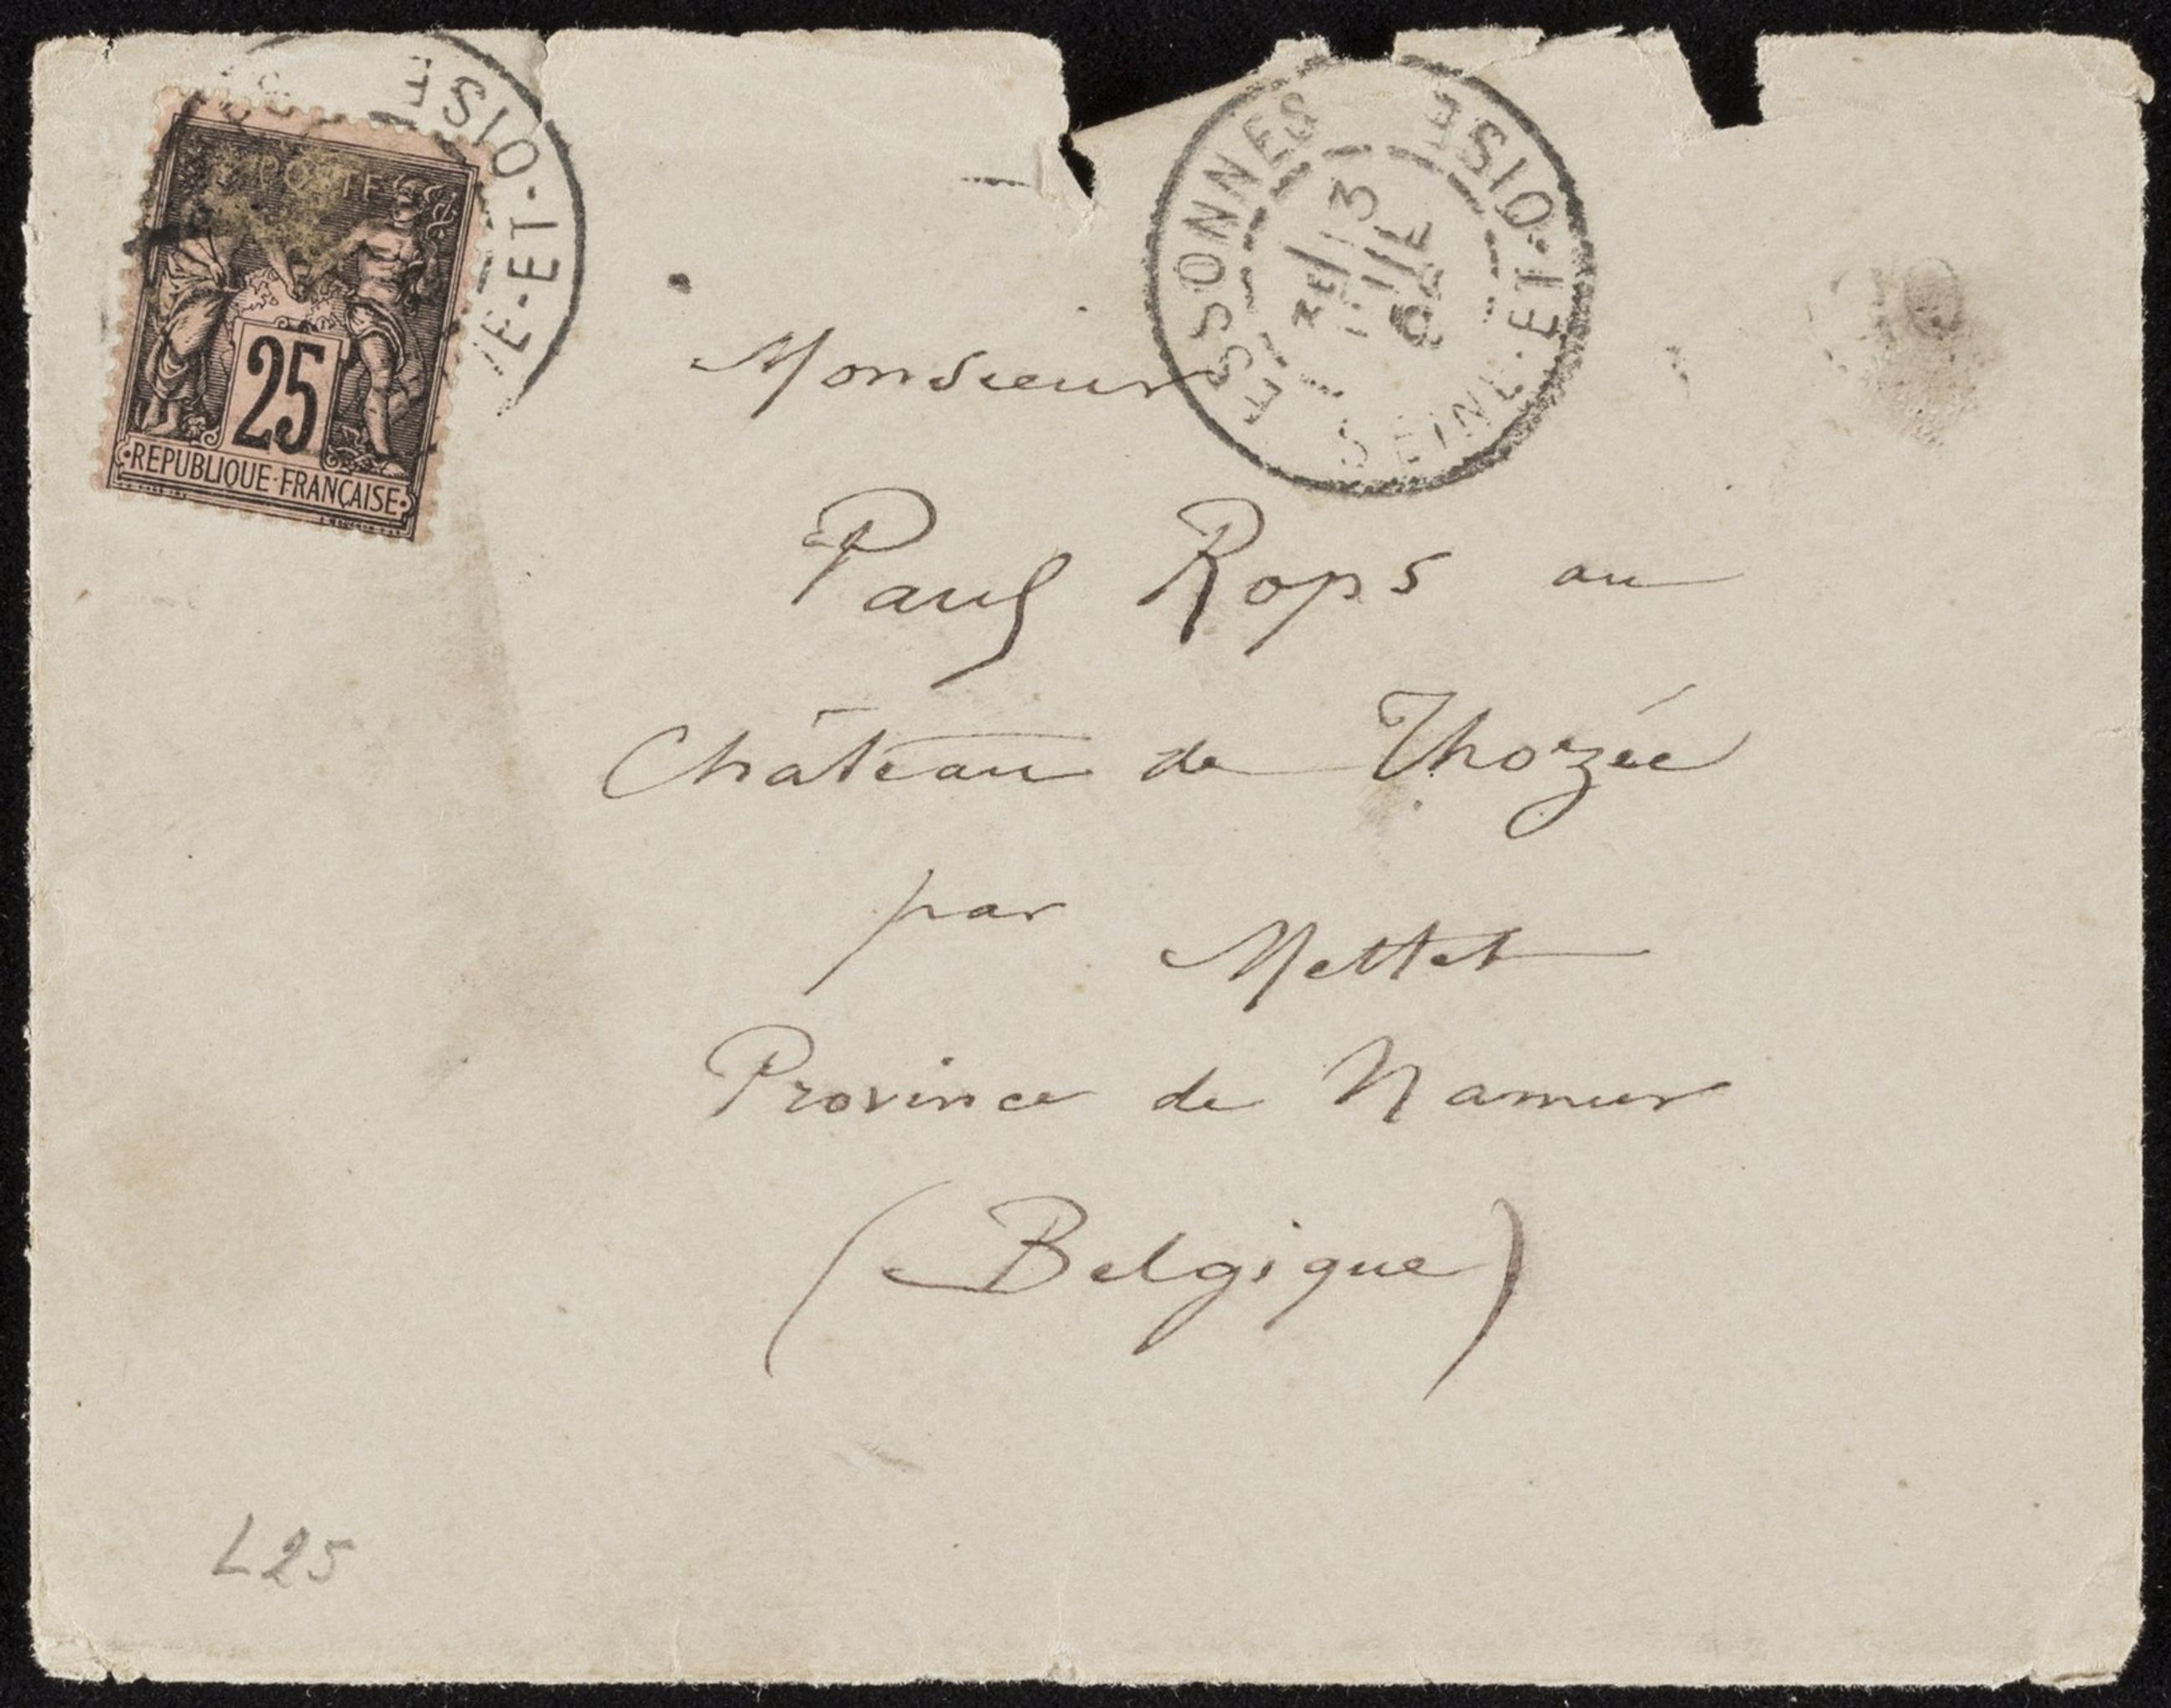 POSTES
25
REPUBLIQUE·FRANÇAISE
E·ET·OISE
ESSONNES
SEINE·ET·OISE
13
Monsieur
Paul Rops au
Château de Thozée
par Mettet
Province de Namur
(Belgique)
L25